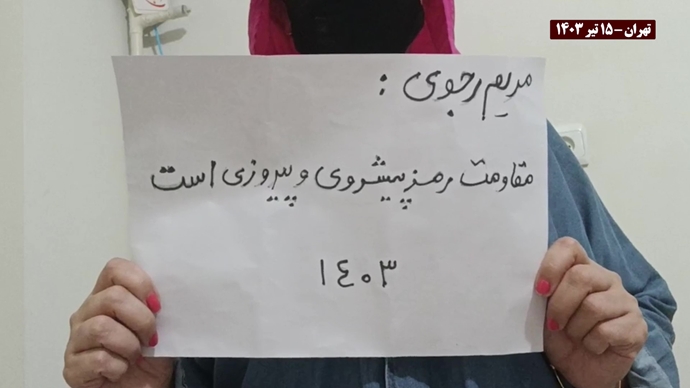 تهران - ۱۵ تیر ۱۴۰۳
مریم رجوی :
مقاومت رمز پیشروی و پیروزی است
۱٤۰۳